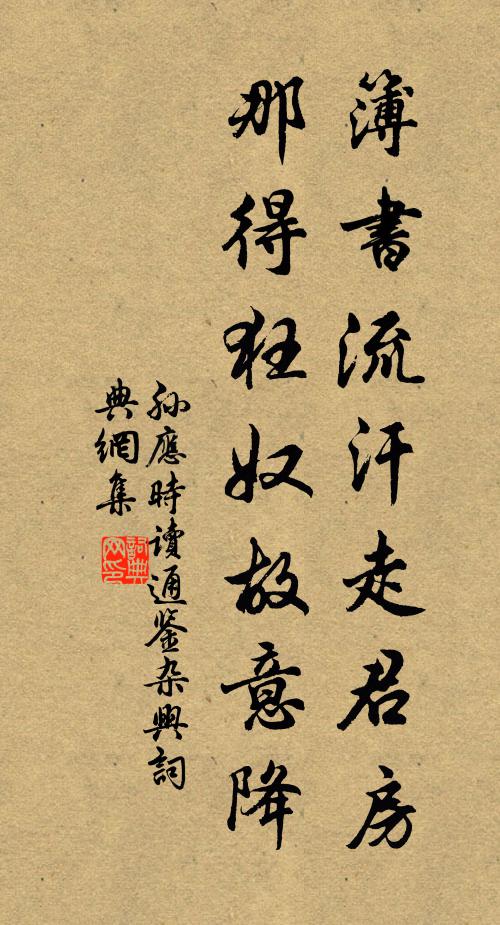 簿書流汗走君房
那得狂奴故意降
孙應時讀通鉴杂興詞
典網集
詞典網印